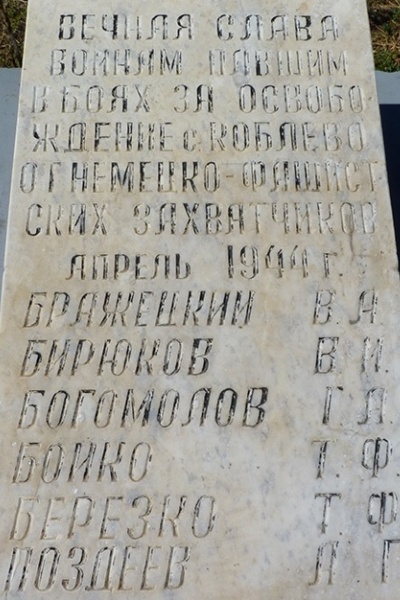 ВЕЧНАЯ СЛАВА
ВОИНАМ ПАВШИМ
В БОЯХ ЗА ОСВОБО
ЖДЕНИЕ с. КОБЛЕВО
ОТ НЕМЕЦКО-ФАШИСТ
СКИХ ЗАХВАТЧИКОВ
АПРЕЛЬ 1944 г.
БРАЖЕЦКИЙ В. А.
БИРЮКОВ В. И.
БОГОМОЛОВ Г. Л.
БОЙКО Т. Ф
БЕРЕЗКО Т. Ф
ПОЗДЕЕВ Л Г